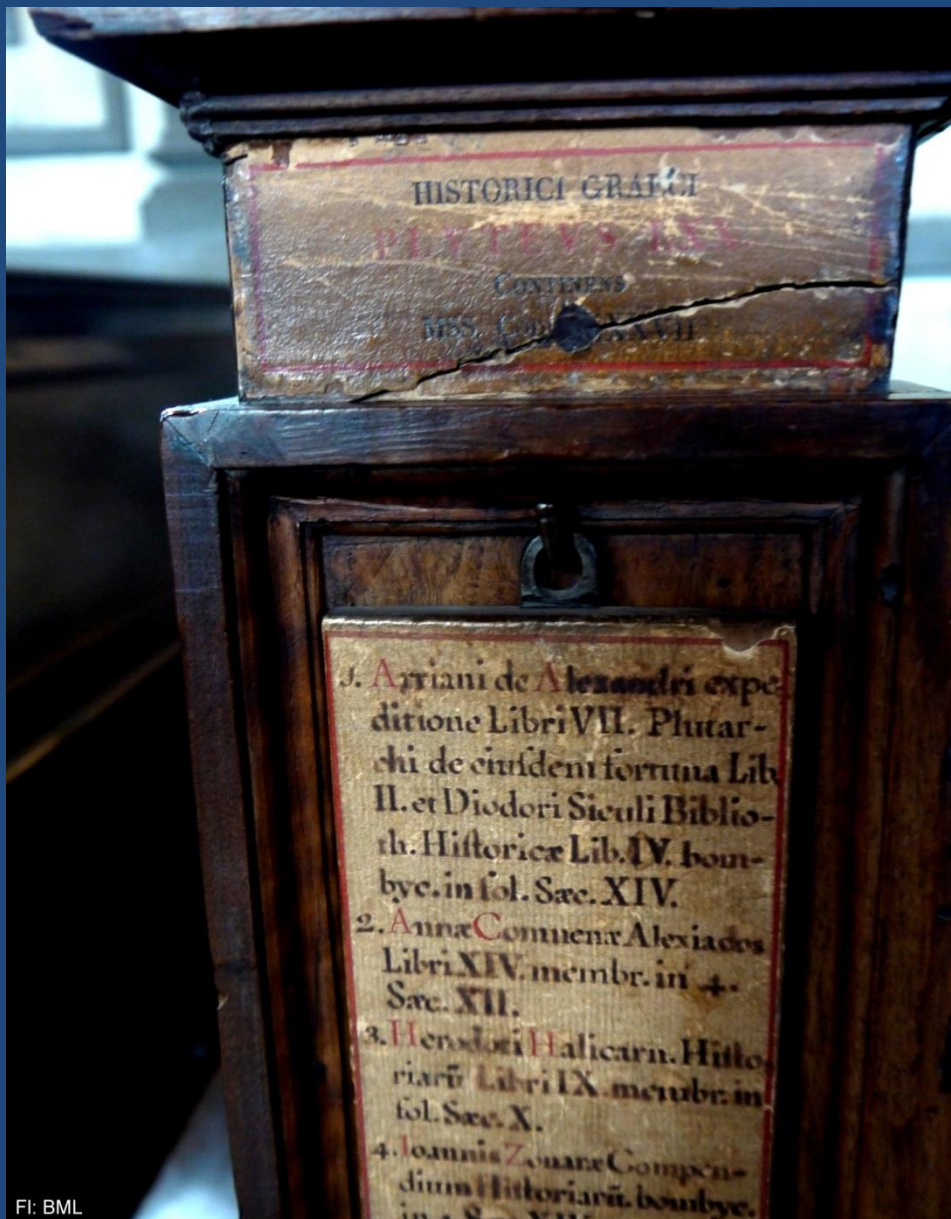 HISTORICI GRAECI
PLVTEVS LXX.
CONTINENS
MSS.
1. Arriani de Alexandri expe-
ditione Libri VII. Plutar-
chi de eiuſdem fortuna Lib.
II. et Diodori Siculi Biblio-
th. Hiſtoricæ Lib. IV. bom-
byc. in fol. Sæc. XIV.
2. Annæ Comnenæ Alexiados
Libri XIV. membr. in 4.
Sæc. XII.
3. Herodoti Halicarn. Hiſto
riarũ Libri IX. membr. in
fol. Sæc. X.
4. Ioannis Zonaræ Compen-
dium Hiſtoriarũ. bombyc.
in 4. Sæc.
FI: BML